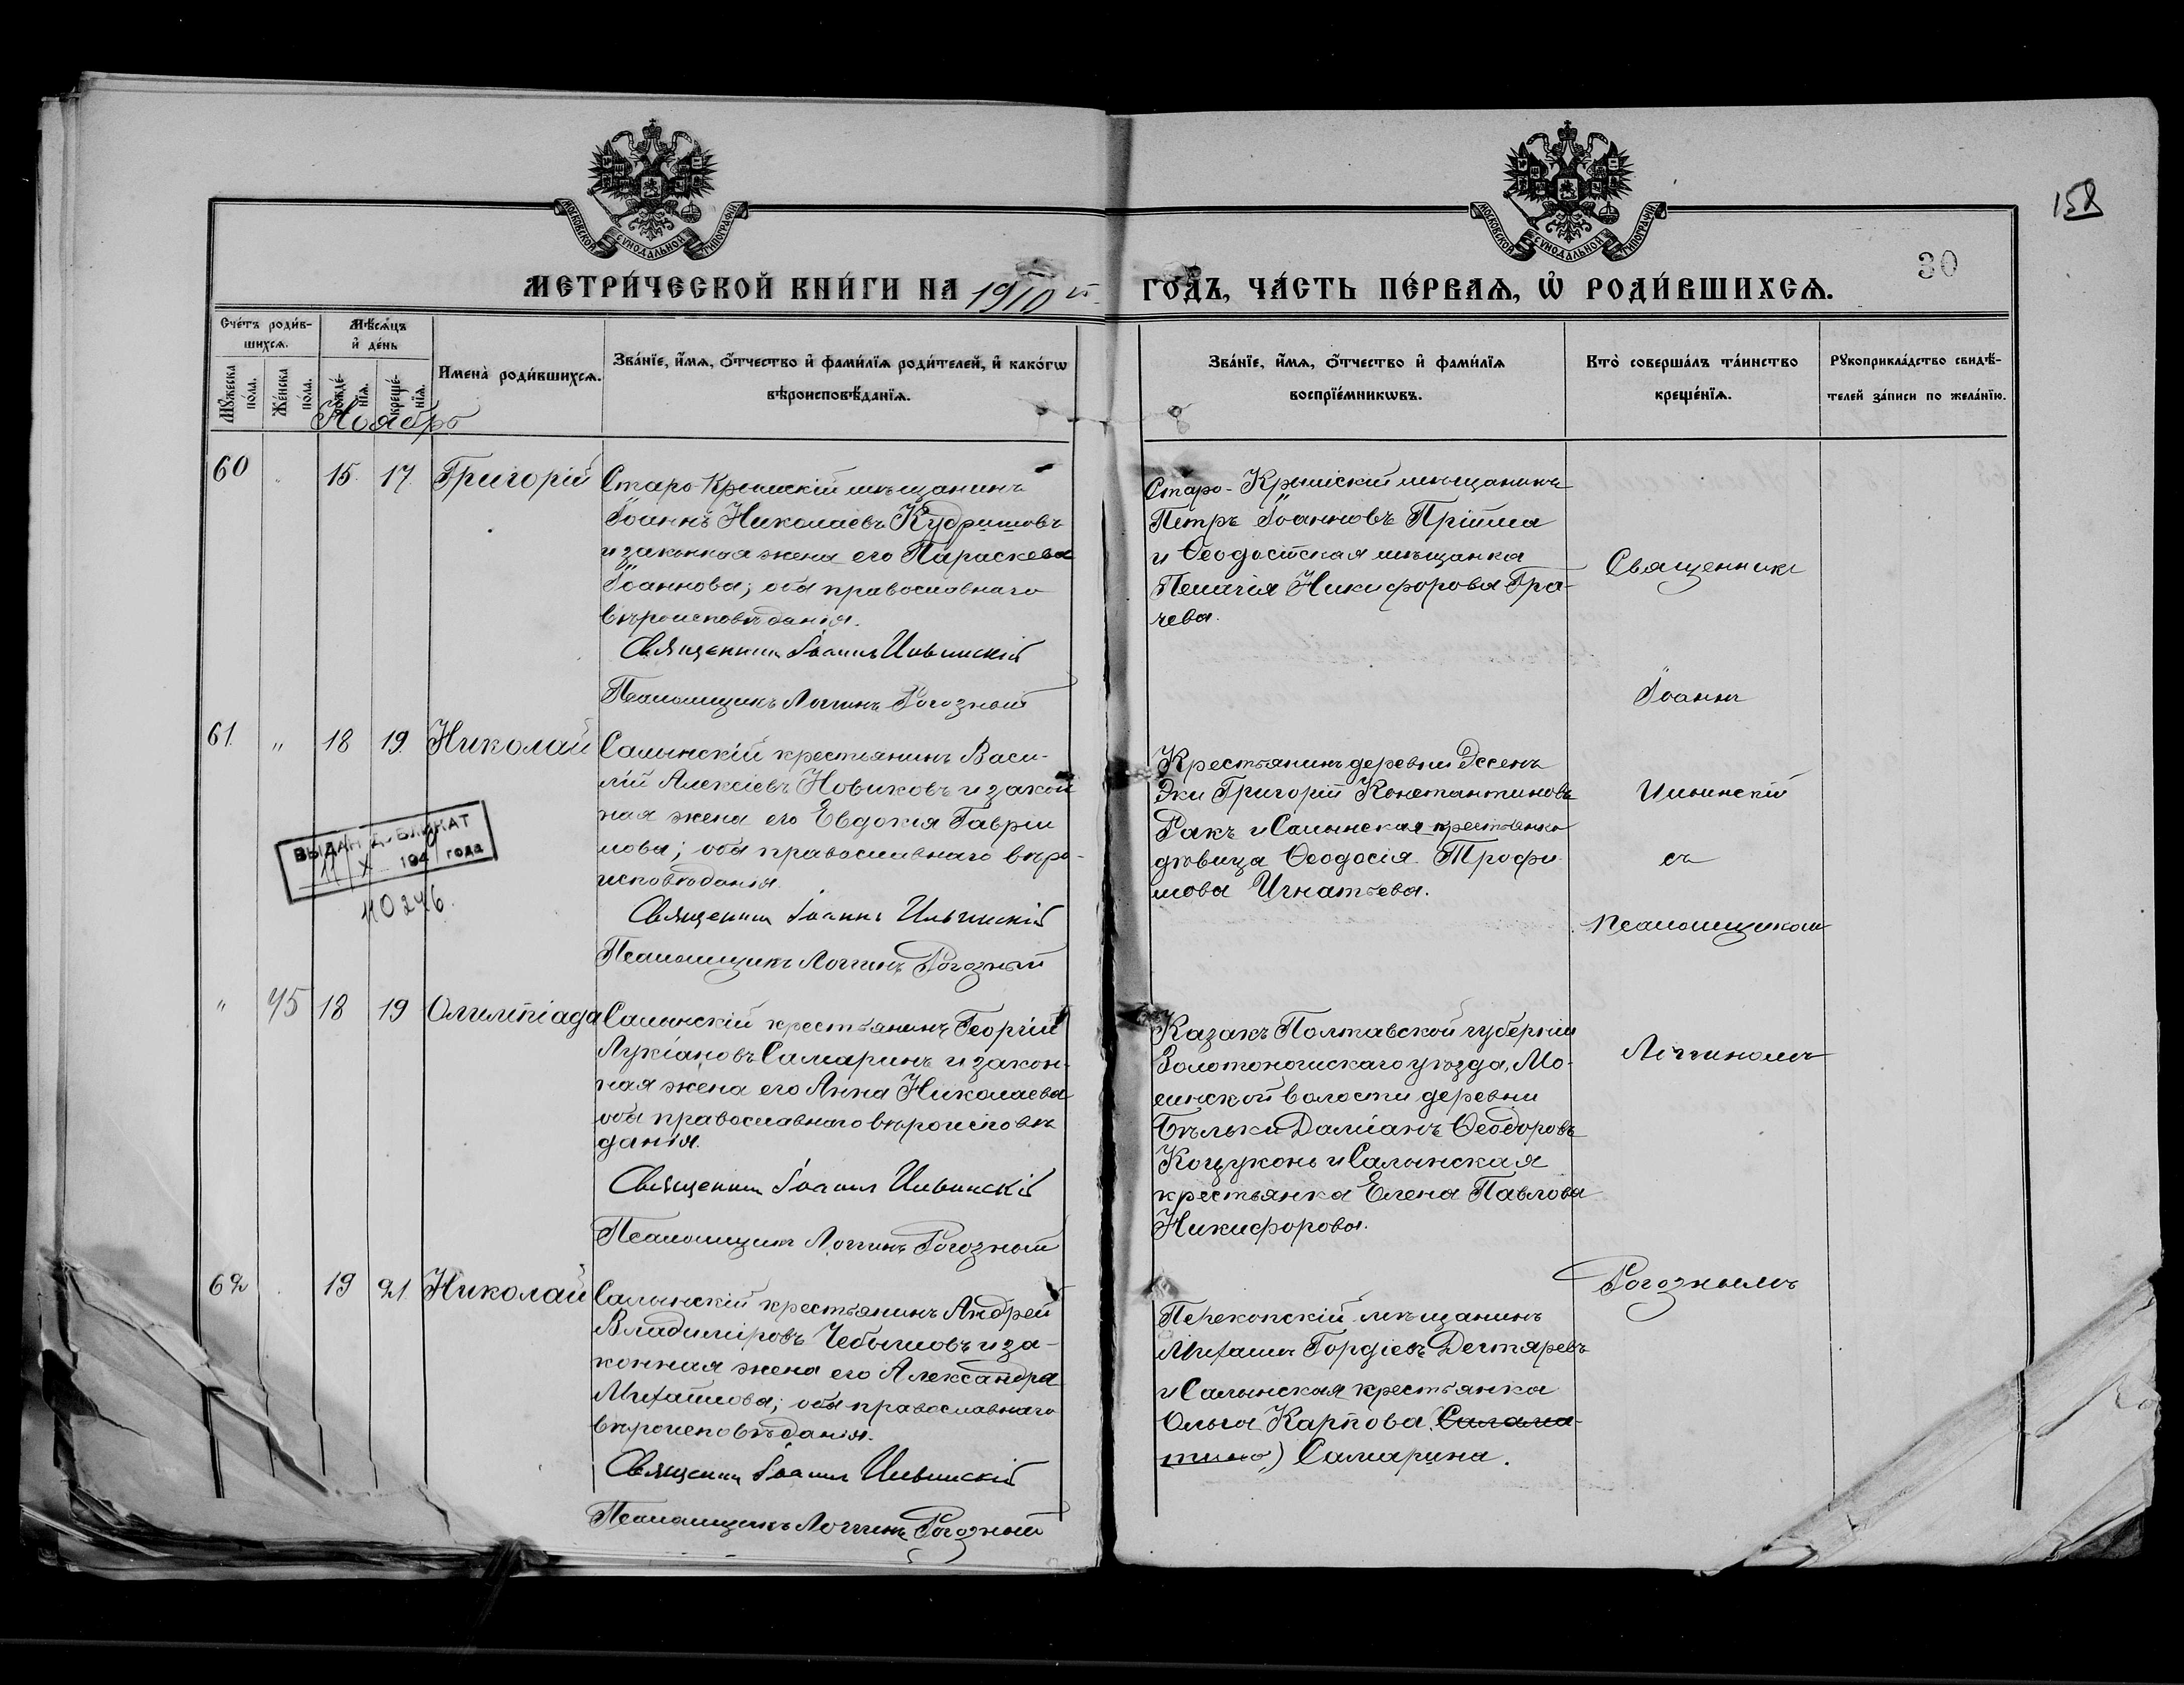 МОСКОВСКОЙ СУНОДАЛЬНОЙ ТИПОГРАФІИ
МОСКОВСКОЙ СУНОДАЛЬНОЙ ТИПОГРАФІИ
158
30
МЕТРИ́ЧЕСКОЙ КНИ́ГИ НА 1910 й ГО́ДЪ, ЧА́СТЬ ПЕ́РВАѦ, Ѡ҆ РОДИ́ВШИХСѦ.
Сче́тъ роди́в-
шихсѧ.
Мꙋ́жеска по́ла.
Же́нска по́ла.
Мѣ́сѧцъ
и҆ де́нь
рожде́-
нїѧ.
креще́-
нїѧ.
Имена̀ роди́вшихсѧ.
Зва́нїе, и҆́мѧ, ѻ҆́тчество и҆ фами́лїѧ роди́телей, и҆ како́гѡ
вѣроисповѣ́данїѧ.
Зва́нїе, и҆́мѧ, ѻ҆́тчество и҆ фами́лїѧ
воспрїе́мникѡвъ.
Кто̀ соверша́лъ та́инство
креще́нїѧ.
Рꙋкоприкла́дство свидѣ́-
телей за́писи по жела́нїю.
Ноябрь
60 15. 17. Григорій
Старо-Крымскій мѣщанинъ
Іоаннъ Николаевъ Кудряшовъ
и законная жена его Параскева
Іоаннова; оба православнаго
вѣроисповѣданія.
Священникъ Іоаннъ Ильинскій
Псаломщикъ Логгинъ Рогозный
Старо-Крымскій мѣщанинъ
Петръ Іоанновъ Прійма
и Ѳеодосійская мѣщанка
Пелагія Никифорова Гра-
чева.
61. " 18 19. Николай
Салынскій крестьянинъ Васи-
лій Алексіевъ Новиковъ и закон
ная жена его Евдокія Гаврии
лова; оба православнаго вѣро-
исповѣданія.
Священникъ Іоаннъ Ильинскій
Псаломщикъ Логгинъ Рогозный
ВЫДАН ДУБЛИКАТ
11 X 194 года
110246.
Крестьянинъ деревни Эссенъ
Эки Григорій Константиновъ
Ракъ и Салынская крестьянка
дѣвица Ѳеодосія Трофи-
мова Игнатьева.
" 45 18 19 Олимпіада
Салынскій крестьянинъ Георгій
Лукіановъ Самаринъ и закон-
ная жена его Анна Николаева
оба православнаго вѣроисповѣ
данія.
Священникъ Іоаннъ Ильинскій
Псаломщикъ Логгинъ Рогозный
Казакъ Полтавской губерніи
Золотоношскаго уѣзда, Мо-
синской волости деревни
Бѣльки Даміанъ Ѳеодоровъ
Коцуконь и Салынская
крестьянка Елена Павлова
Никифорова.
62 19 21. Николай
Салынскій крестьянинъ Андрей
Владиміровъ Чебышовъ и за-
конная жена его Александра
Михайлова; оба православнаго
вѣроисповѣданія.
Священникъ Іоаннъ Ильинскій
Псаломщикъ Логгинъ Рогозный
Перекопскій мѣщанинъ
Михаилъ Гордіевъ Дегтяревъ
и Салынская крестьянка
Ольга Карпова
Самарина.
Священникъ
Іоаннъ
Ильинскій
съ
псаломщикомъ
Логгиномъ
Рогознымъ